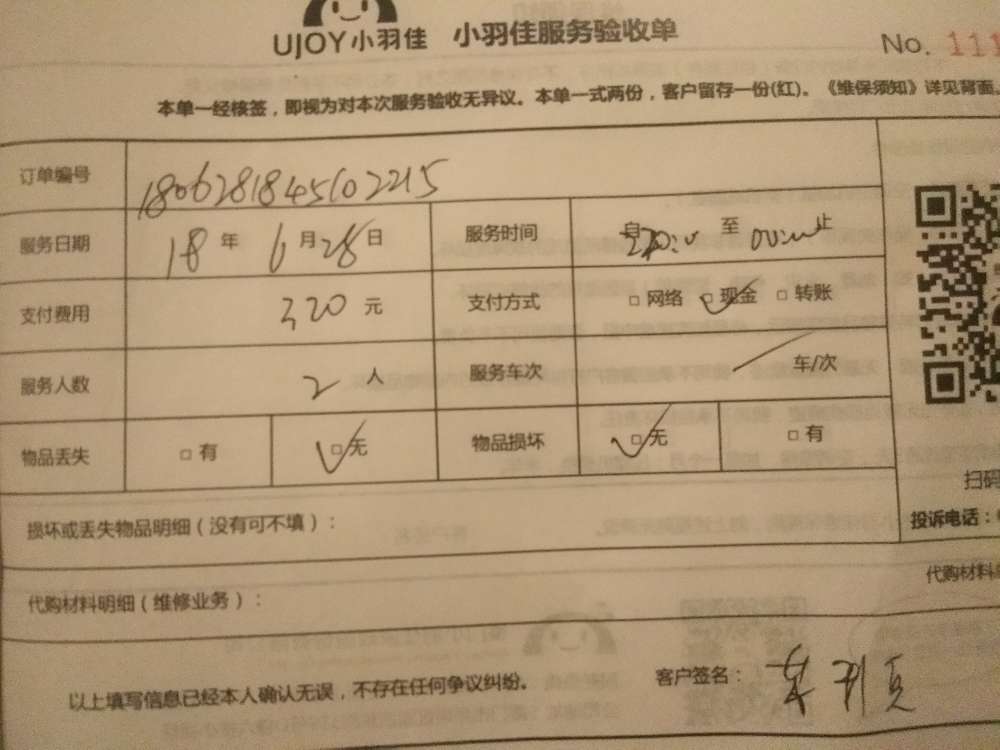 UJOY小羽佳 小羽佳服务验收单
No. 111
本单一经核签，即视为对本次服务验收无异议。本单一式两份，客户留存一份(红)。《维保须知》详见背面。
订单编号 1806281845102215
服务日期 18 年 6 月 28 日 服务时间 自 至 00:00 止
支付费用 320 元 支付方式 □ 网络 □ 现金 □ 转账
服务人数 2 人 服务车次 车/次
物品丢失 □ 有 □ 无 物品损坏 □ 无 □ 有
扫码
损坏或丢失物品明细（没有可不填）：
投诉电话：
代购材料明细（维修业务）：
代购材料
以上填写信息已经本人确认无误，不存在任何争议纠纷。 客户签名：